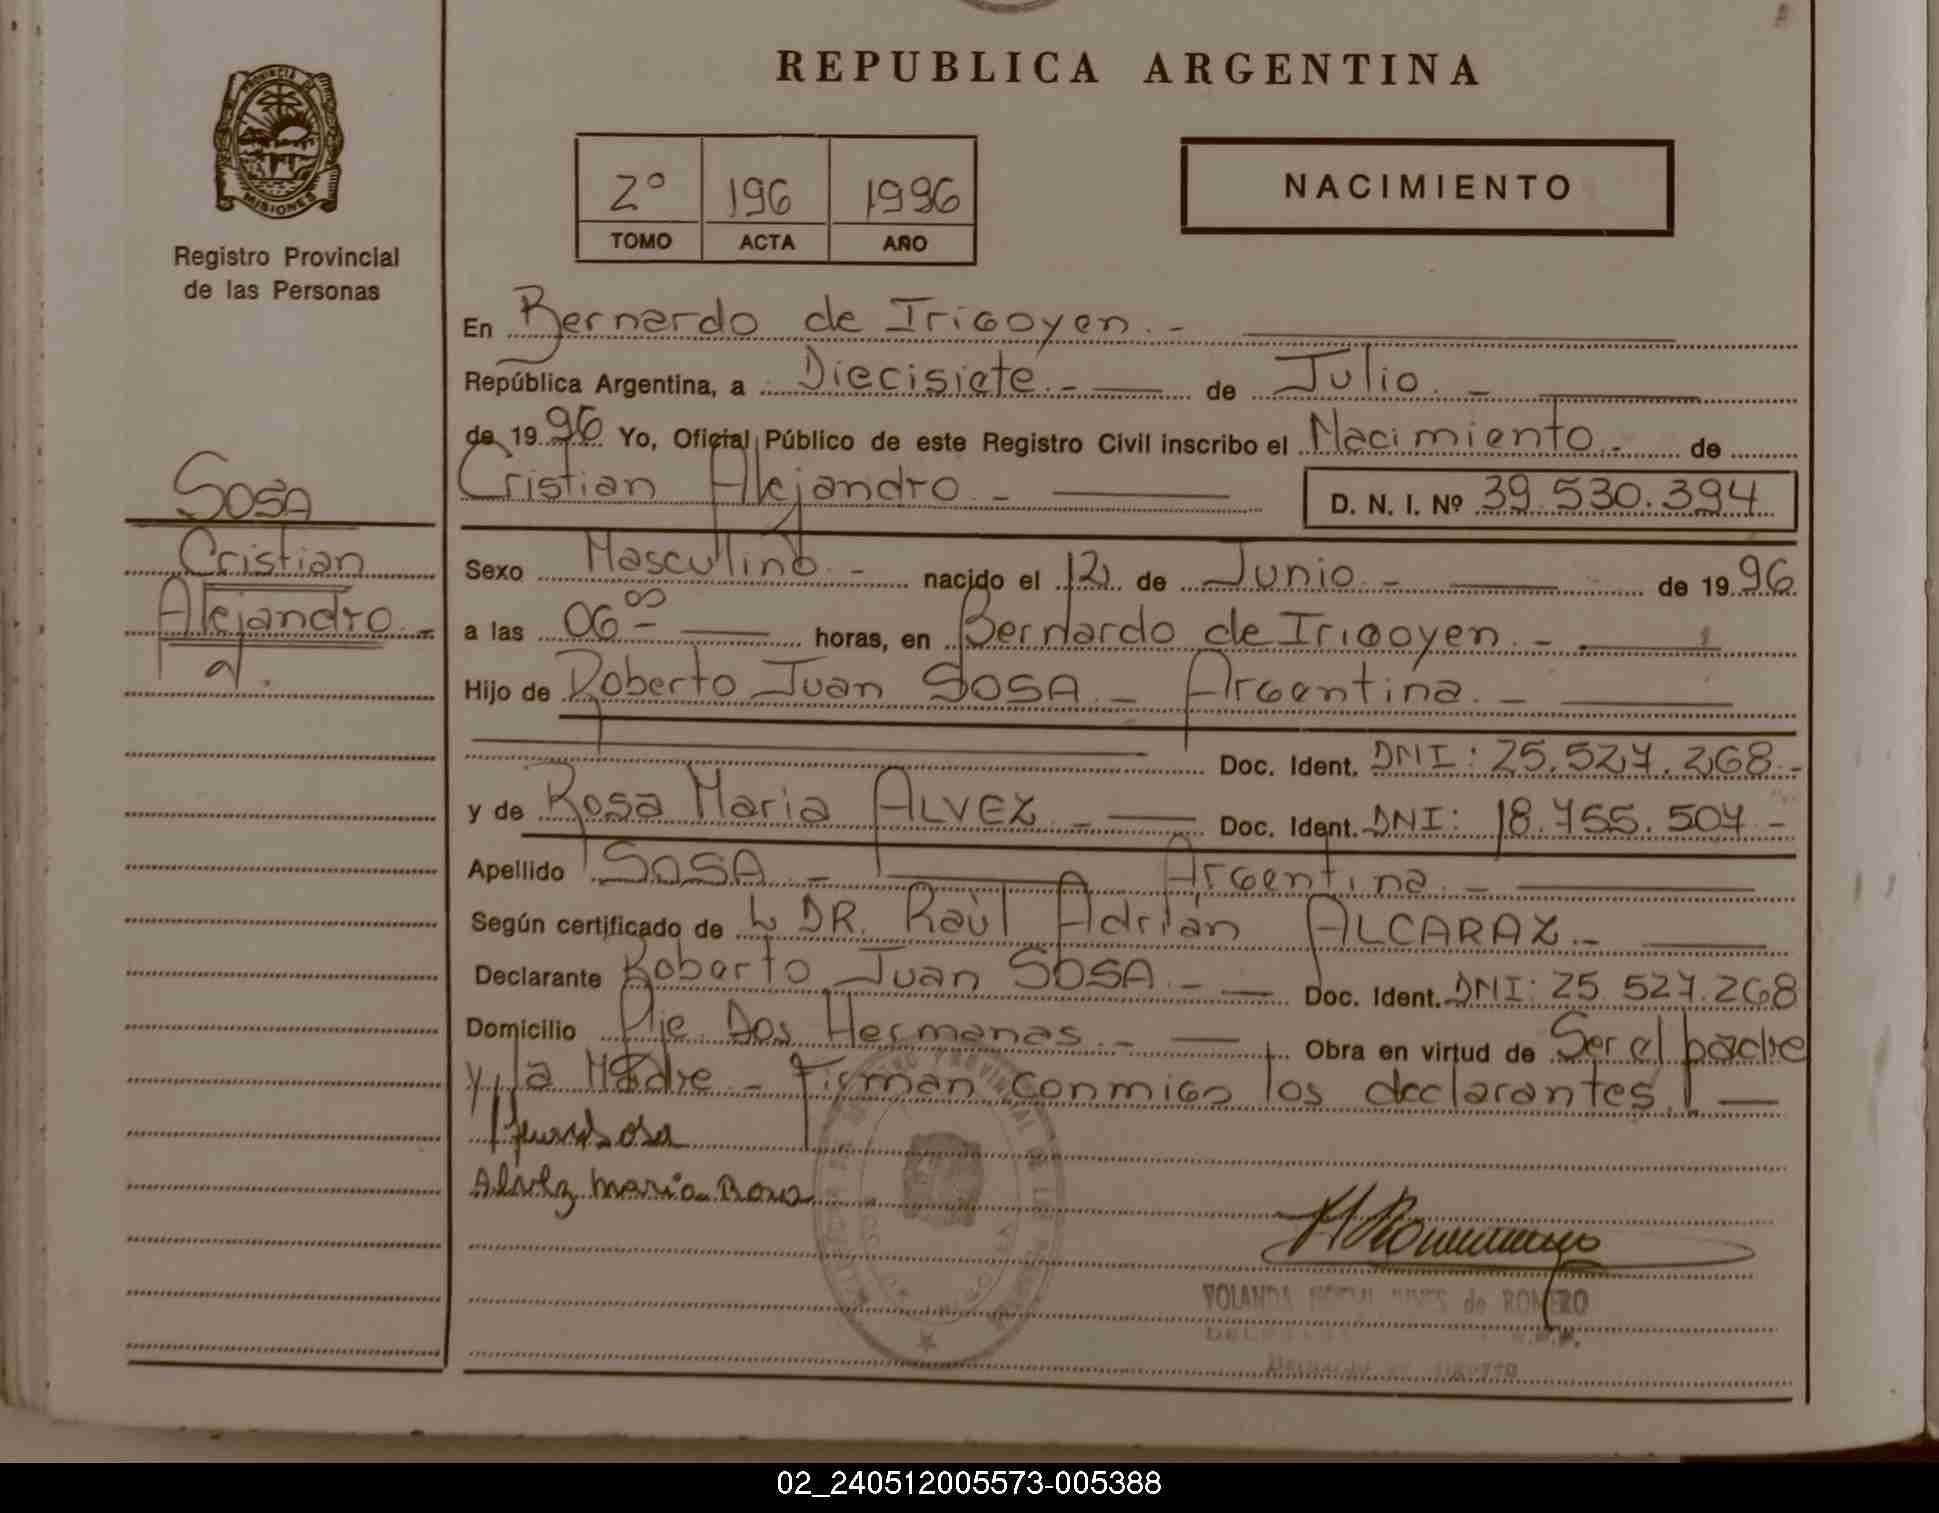 REPUBLICA ARGENTINA
PROVINCIA DE
MISIONES
Registro Provincial
de las Personas
2º 196 1996
TOMO ACTA AÑO
NACIMIENTO
En Bernardo de Irigoyen.-
República Argentina, a Diecisiete.- de Julio.-
de 1996 Yo, Oficial Público de este Registro Civil inscribo el Nacimiento.- de
Cristian Alejandro.- D. N. I. Nº 39.530.394
SOSA
Cristian
Alejandro.-
Sexo Masculino.- nacido el 12 de Junio.- de 1996
a las 06 00- horas, en Bernardo de Irigoyen.-
Hijo de Roberto Juan SOSA.- Argentina.-
Doc. Ident. DNI: 25.527.268.-
y de Rosa Maria ALVEZ.- Doc. Ident. DNI: 18.755.507-
Apellido SOSA.- Argentina.-
Según certificado de DR. Raùl Adrián ALCARAZ.-
Declarante Roberto Juan SOSA.- Doc. Ident. DNI: 25.527.268
Domicilio Pje Dos Hermanas.- Obra en virtud de Ser el padre
y la Madre - Firman conmigo los declarantes.
Juan Sosa
Alvez maria Rosa
YOLANDA de ROMERO
02_240512005573-005388